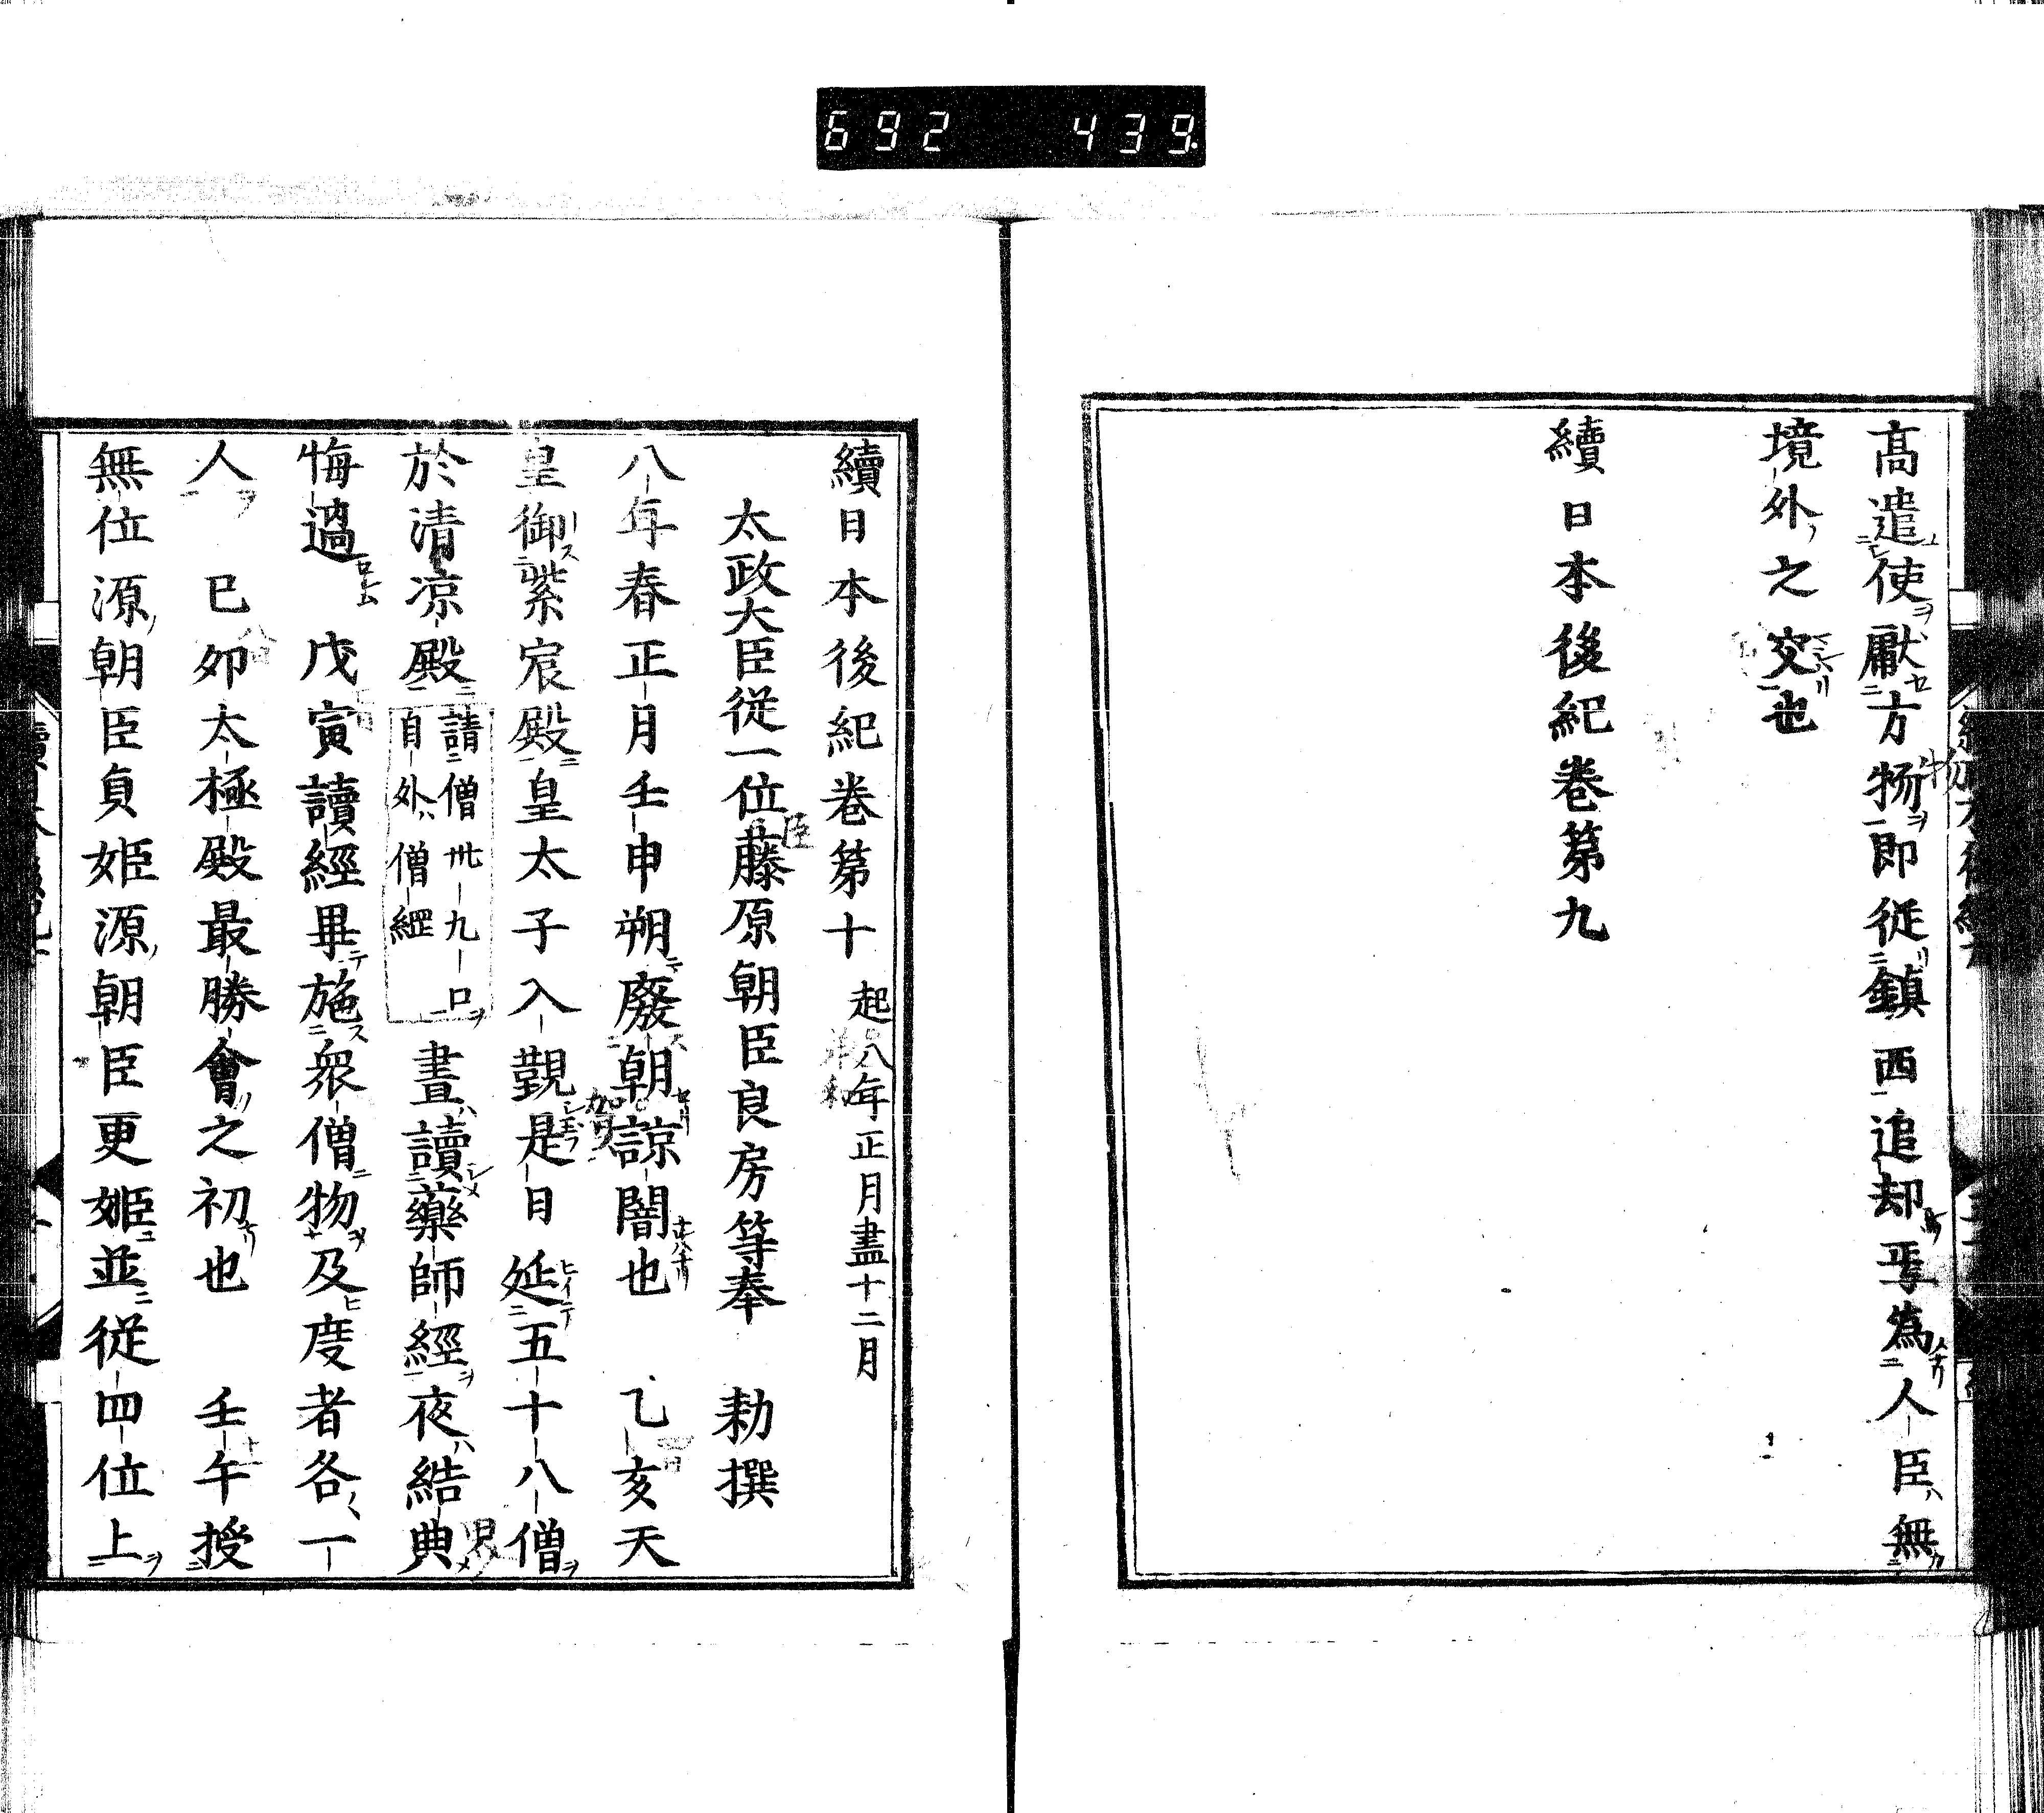 692 439
髙遣使獻方物即從鎮西追却焉為人臣無
境外之交也
續日本後紀巻第九
續日本後紀巻第十 起八年正月盡十二月
太政大臣從一位藤原朝臣良房等奉 勅撰
八年春正月壬申朔廢朝諒闇也 乙亥天
皇御紫宸殿皇太子入覲是日延五十八僧
於清凉殿
請僧卅九口
自外僧綱
晝讀藥師經夜結典
悔過 戊寅讀經畢施衆僧物及度者各一
人 已卯太極殿最勝會之初也 壬午授
無位源朝臣貞姫源朝臣更姫並從四位上